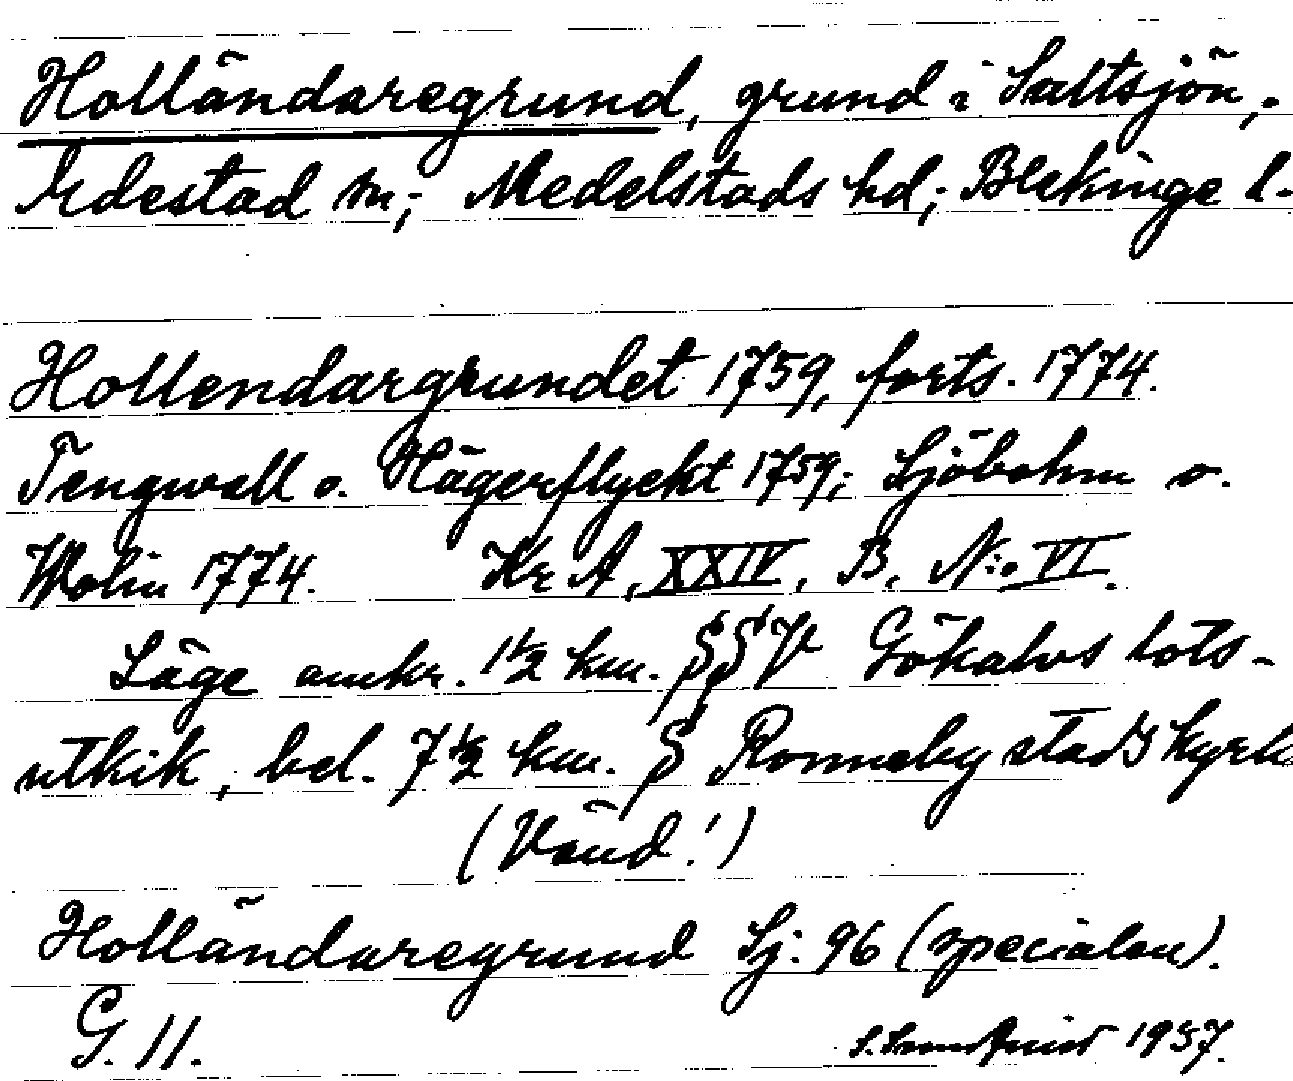 Holländaregrund, grund i Saltsjön,
Edestad sn; Medelstads hd; Blekinge l.
Hollendargrundet 1759, forts. 1774.
Tengwall o. Hägerflycht 1759; Sjöbohm o.
Molin 1774. Kr A, XXIV, B, N:o VI.
Läge omkr. 1 1/2 km. SSV Gökalvs lots-
utkik, bel. 7 1/2 km. S Ronneby stads kyrk
(Vänd!)
Holländaregrund Sj. 96 (specialen).
G. 11. 1937.